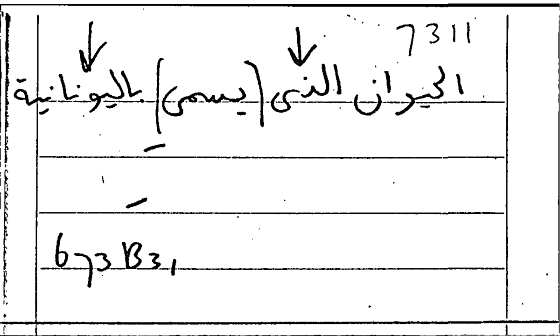 7311
الحيوان الذى (يسمى) باليونانية
673B31